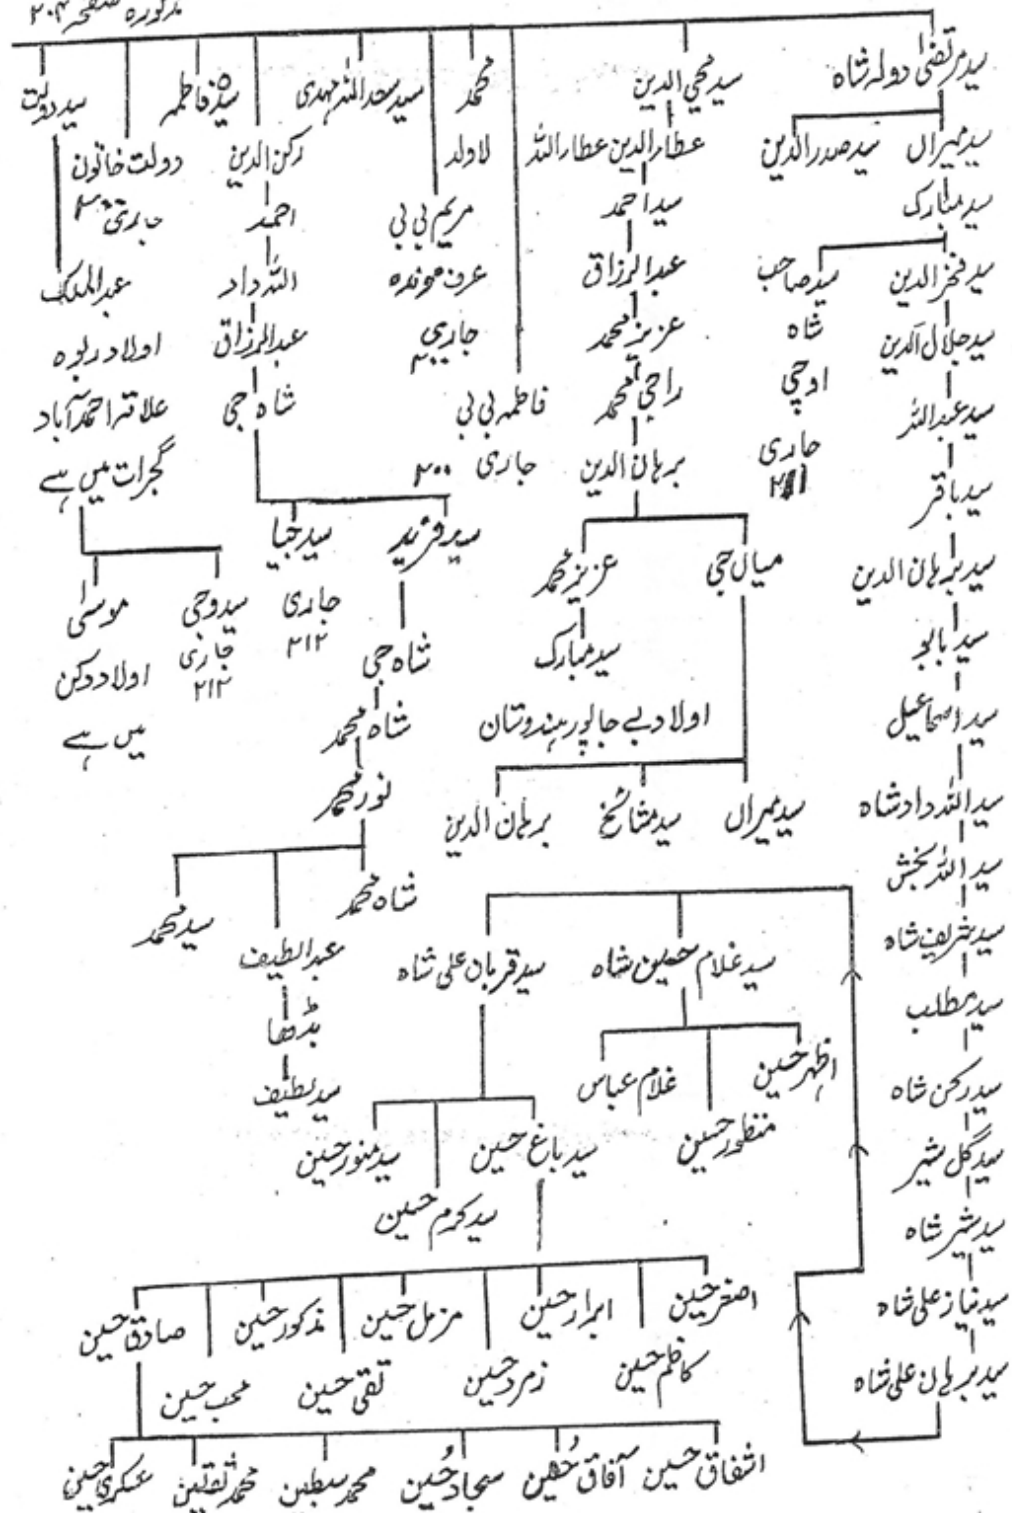 مذکورہ صفحہ ۲۰۴
سید مرتضیٰ دولہ شاہ
سید میراں
سید صدر الدین
سید مبارک
سید فخر الدین
سید صاحب
شاہ
اوچی
جاری
سید جلال الدین
سید عبداللہ
سید باقر
سید برہان الدین
سید بابو
سید اسماعیل
سید اللہ داد شاہ
سید اللہ بخش
سید شریف شاہ
سید مطلب
سید رکن شاہ
سید گل شیر
سید شیر شاہ
سید نیاز علی شاہ
سید برہان علی شاہ
سید محی الدین
عطار الدین عطار اللہ
سید احمد
عبدالرزاق
عزیز محمد
راجی محمد
برہان الدین
میاں جی
عزیز محمد
سید مبارک
اولاد بے جاپور ہندوستان
سید میراں
سید مشائخ
برہان الدین
فاطمہ بی بی
جاری ۲۰۰
محمد
لاولد
مریم بی بی
عرف موندہ
جاری
سید سعد اللہ مہدی
رکن الدین
احمد
اللہ داد
عبدالرزاق
شاہ جی
سید فرید
سید جیا
جاری
۲۱۲
شاہ جی
شاہ محمد
نور محمد
شاہ محمد
عبداللطیف
سید محمد
بڈھا
سید لطیف
سیدہ فاطمہ
دولت خاتون
جاری ۲۰۰
سید دولت
عبدالملک
اولاد ربوہ
علاقہ احمد آباد
گجرات میں ہے
سید وجی
جاری
۲۱۲
موسیٰ
اولاد دکن
میں ہے
سید غلام حسین شاہ
سید قربان علی شاہ
اظہر حسین
منظور حسین
غلام عباس
سید باغ حسین
سید کرم حسین
سید منور حسین
اصغر حسین
کاظم حسین
ابرار حسین
زمرد حسین
مزمل حسین
تقی حسین
مذکور حسین
محب حسین
صادق حسین
اشفاق حسین
آفاق حسین
سجاد حسین
محمد سبطین
محمد ثقلین
عسکری حسین